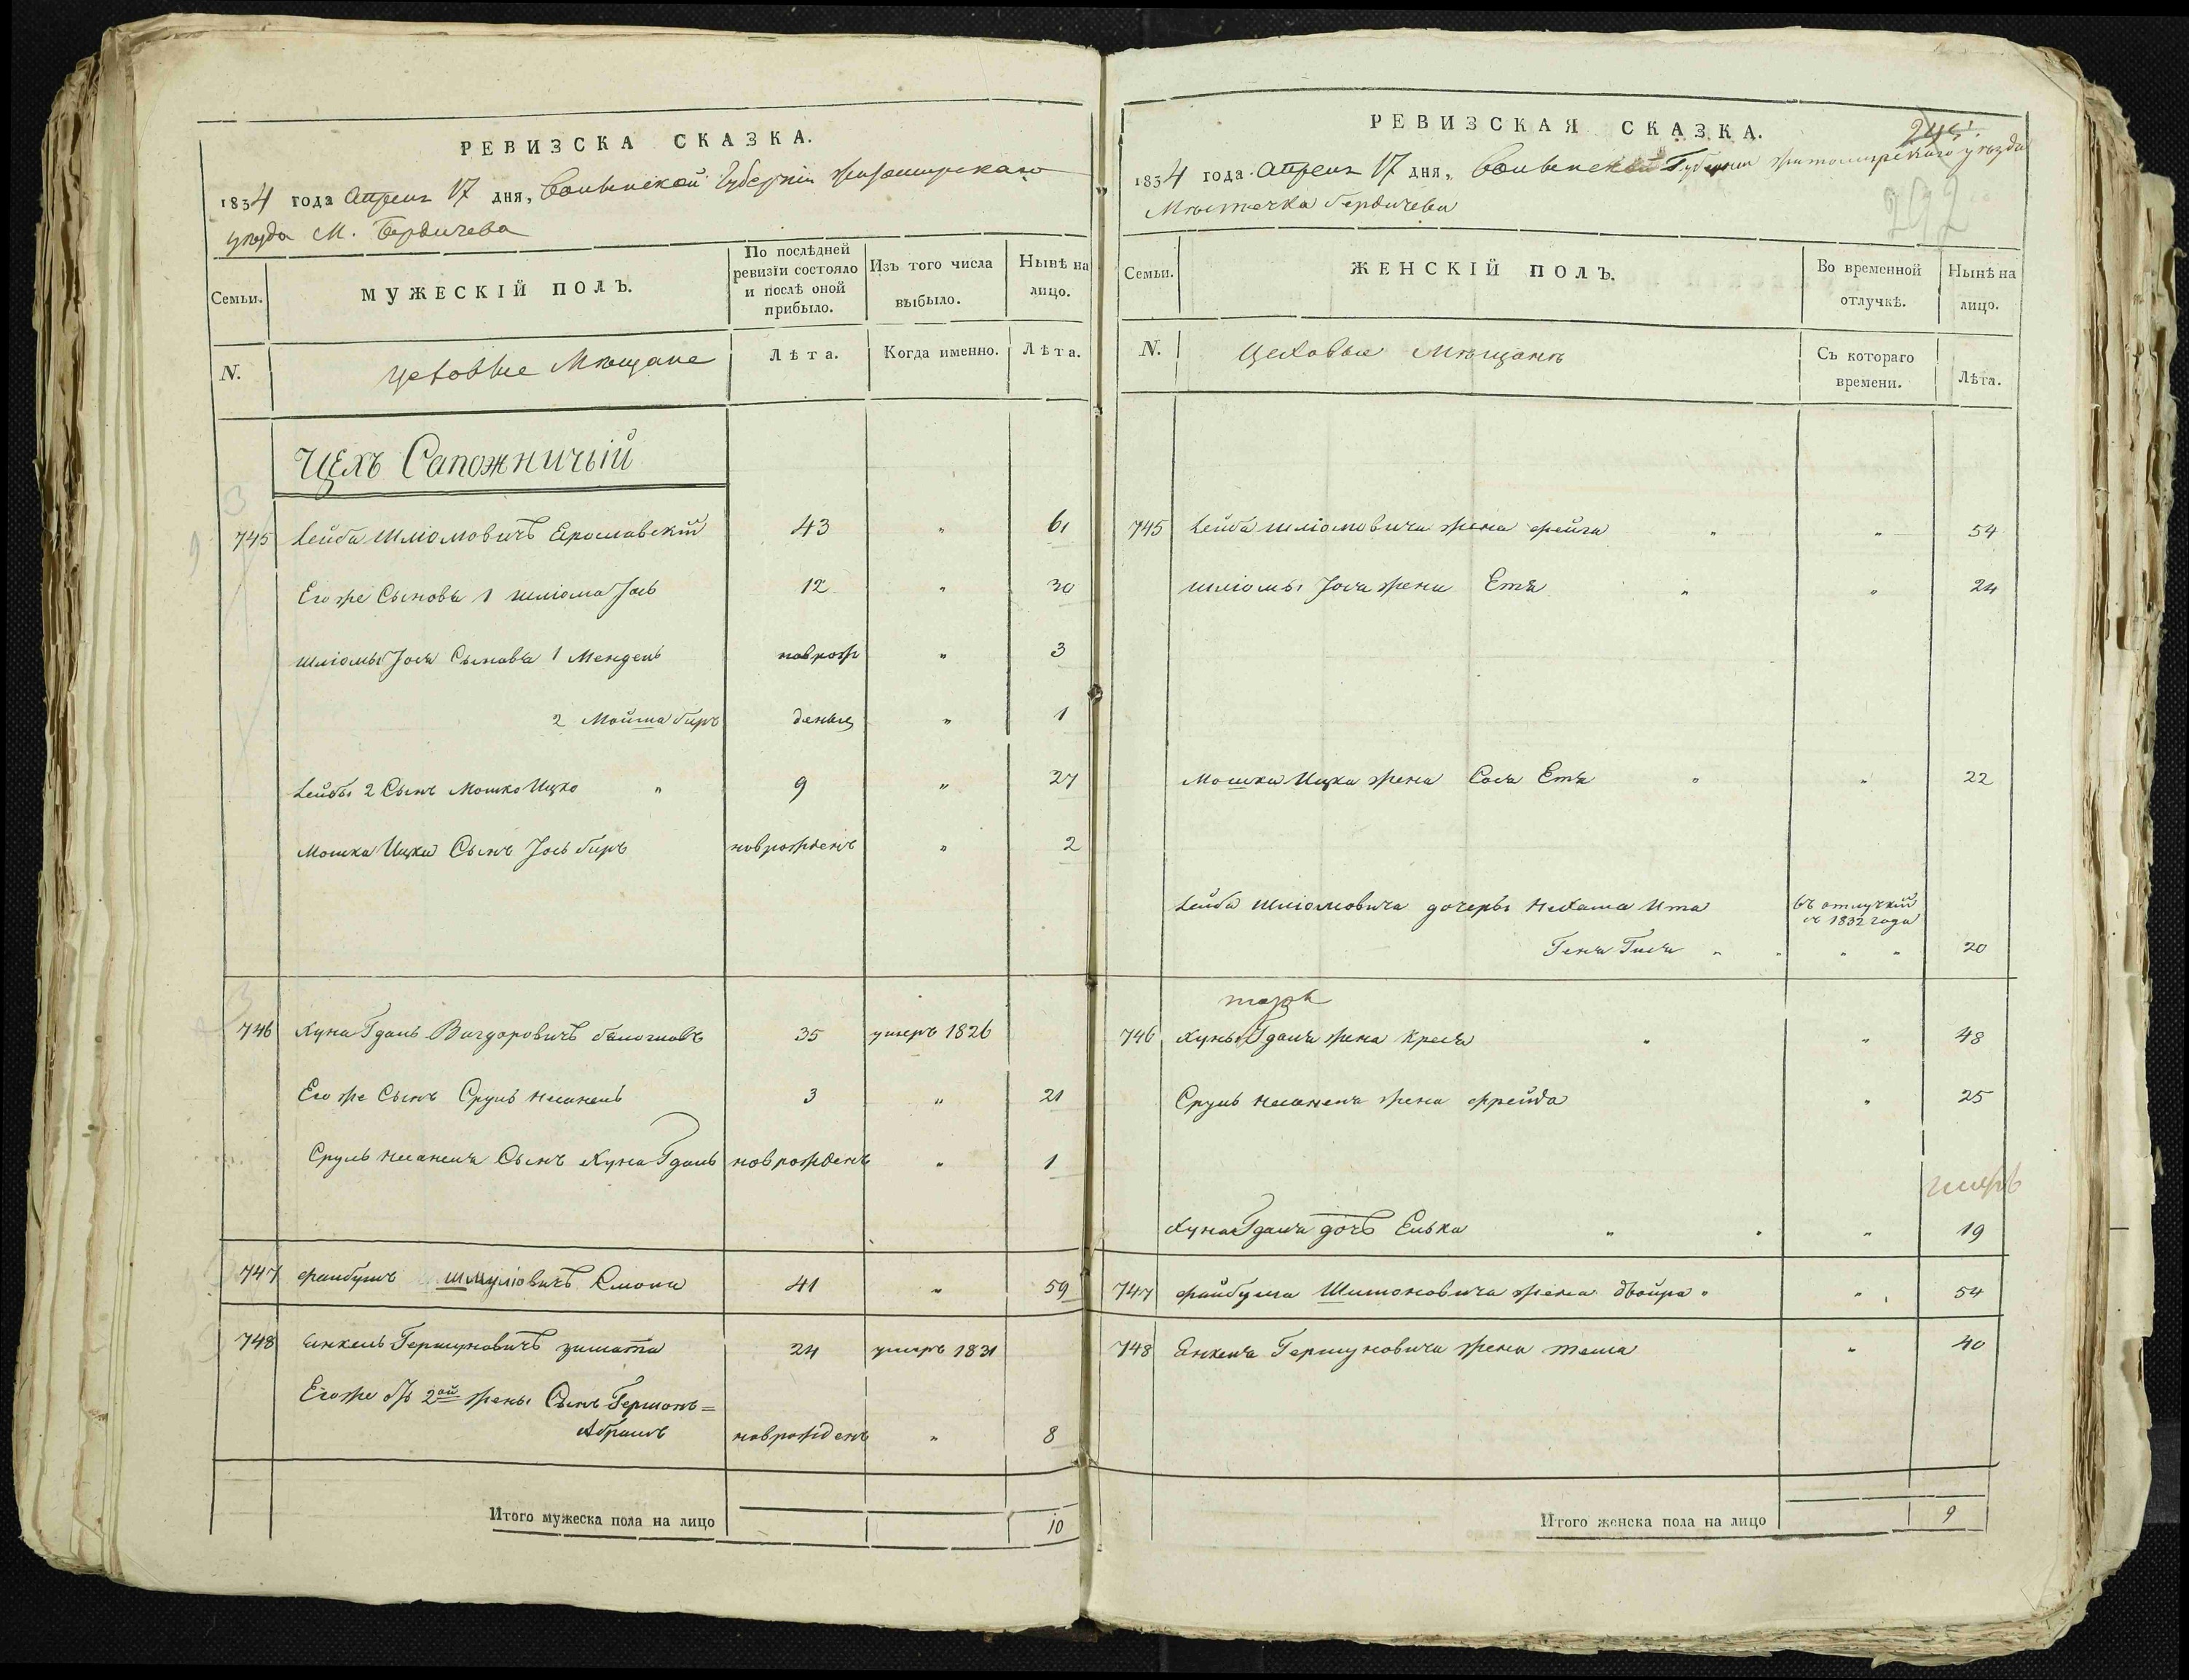 РЕВИЗСКА СКАЗКА.
1834 года Апреля 17 дня, Волынской Губерніи Житомирскаго
уезда М. Бердичева
Семьи.
МУЖЕСКІЙ ПОЛЪ.
По послѣдней
ревизіи состояло
и послѣ оной
прибыло.
Изъ того числа
выбыло.
Нынѣ на
лицо.
N.
Цеховые Мещане
Лѣта.
Когда именно.
Лѣта.
Цехъ Сапожничій
745 Лейба Шліомовичъ Ерославскій 43 " 61
Его же Сыновья 1 Шліома Іось 12 " 30
Шліомы Іося Сыновья 1 Мендель новрож " 3
2 Мойша Биръ деныя " 1
Лейбы 2 Сынъ Мошко Ицко " 9 " 27
Мошка Ицка Сынъ Іось Биръ новрожденъ " 2
746 Хуна Гдаль Вигдоровичъ 35 умеръ 1826
Его же Сынъ Сруль Несанель 3 " 21
Сруль Несанеля Сынъ Хуна Гдаль новрожденъ " 1
747 Файбушъ Шмуліовичъ 41 " 59
748 Янкель Гершуновичъ 24 умеръ 1831
Его же отъ 2ой жены Сынъ Гершонъ=
Абрамъ новрожденъ " 8
Итого мужеска пола на лицо 10
РЕВИЗСКАЯ СКАЗКА.
292
1834 года Апреля 17 дня, Волынской Губерніи Житомирскаго уезда
Местечка Бердичева
Семьи.
ЖЕНСКІЙ ПОЛЪ.
Во временной
отлучкѣ.
Нынѣ на
лицо.
N.
Цеховые Мещане
Съ котораго
времени.
Лѣта.
745 Лейба Шліомовича жена Фейга " " 54
Шліомы Іося жена Етя " " 24
Мошка Ицка жена Сося Етя " " 22
Лейба Шліомовича дочеры Нехама Ита въ отлучкй
съ 1832 года
Геня Гися " " " " 20
746 Хуны Гдаля жена Крейса " " 48
Сруль Несанеля жена Фрейда " 25
умеръ
Хуна Гдаля дочъ Елька " " " 19
747 Файбуша Шимоновича жена Двойра " " 54
748 Янкеля Гершуновича жена Теша " 40
Итого женска пола на лицо 9